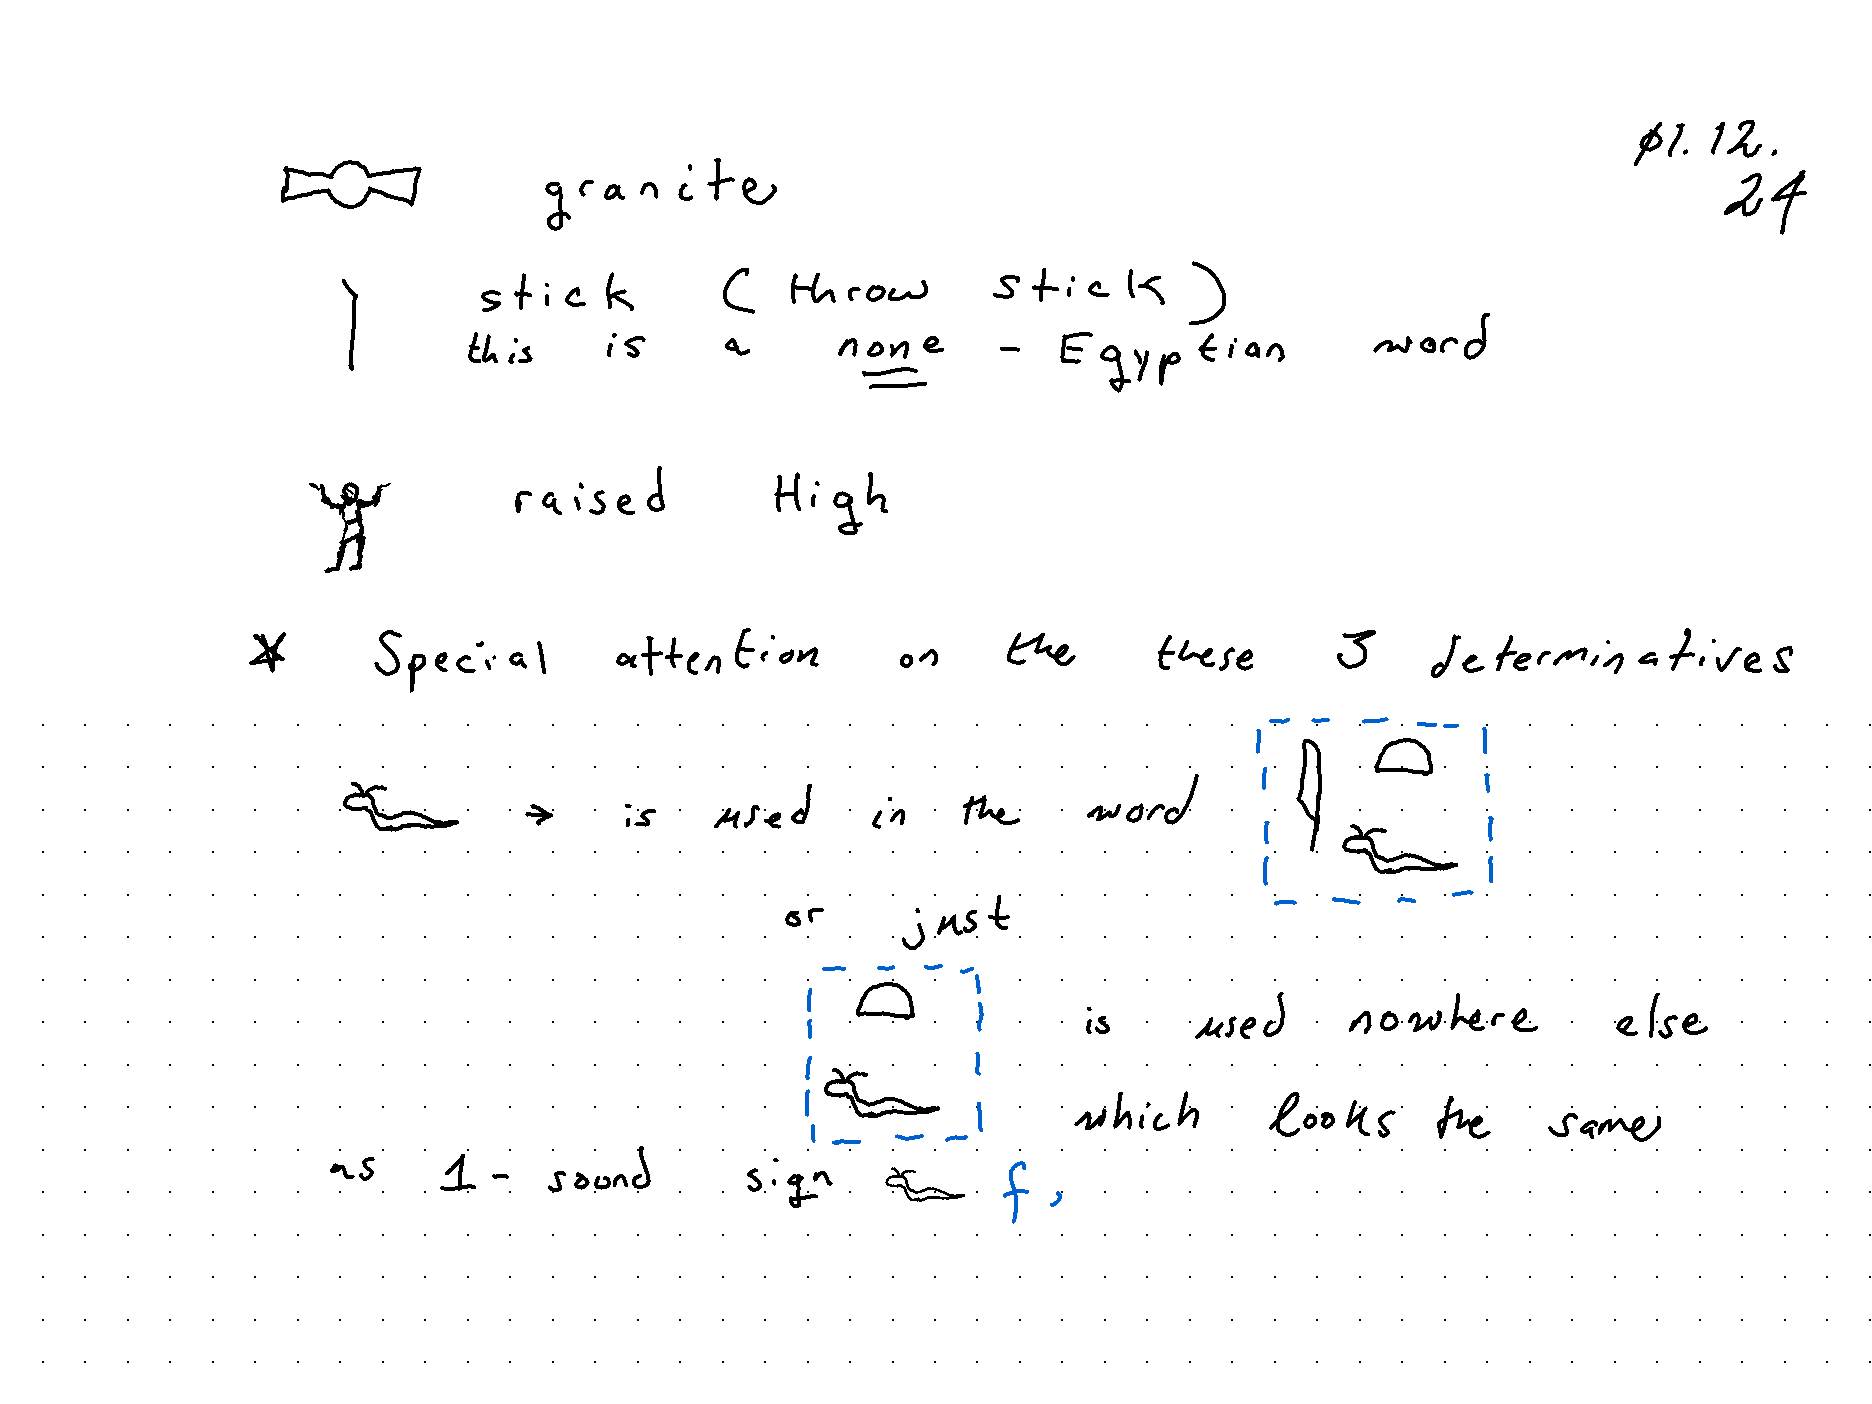 ø1.12.
24
granite
stick (throw stick)
this is a none - Egyptian word
raised High
* Special attention on the these 3 determinatives
→ is used in the word
or just
is used nowhere else
which looks the same
as 1 - sound sign f,